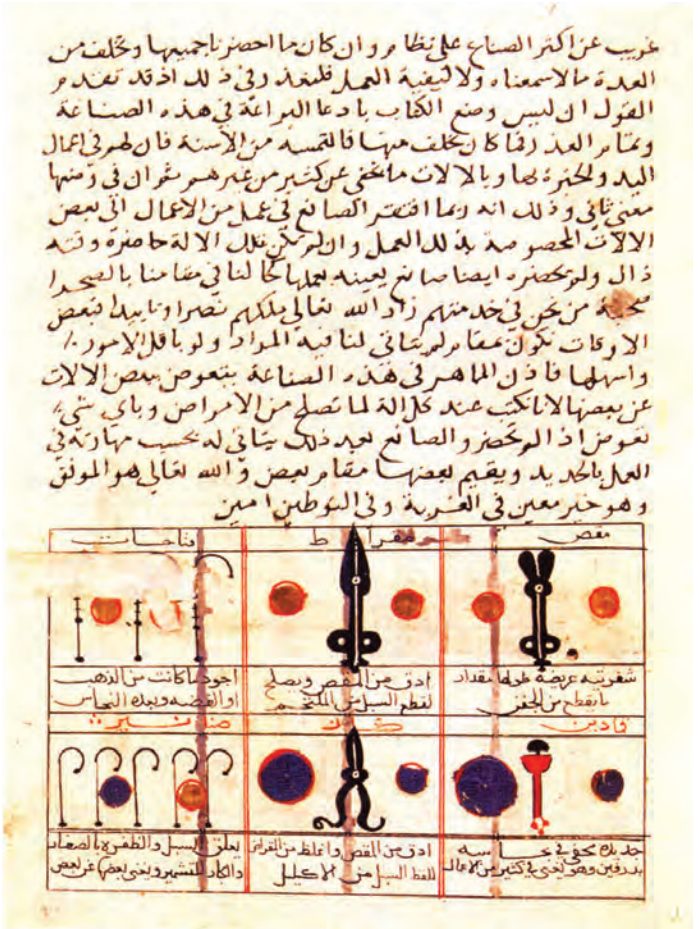 غريب عن اكثر الصناع على نظام وان كان ما احضر تاجميها وتخلف من
العدة مالاسمعناه ولا لتيفية العمل فليعذر في ذلك اذ قد تقدم
القول ان ليس وضع الكتاب بادعا البراعة في هذه الصناعة
وتمام العذر فما كان تخلف منها فالتمسه من الاسنة فان لهم في اعمال
اليد ولخبرة لها وبالالات ما يخفى عن كثير من غيرهم ثم ان في رضها
معنى ثاني وذلك انه ربما افتقر الصانع في عمل من الاعمال الى بعض
الالات المخصوصة بذلك العمل وان لم تكن تلك الالة حاضرة وقته
ذاك ولم يحضره ايضا صانع يعينه بعملها كحالنا في مقامنا بالصحرا
صحبة من نحن في خدمتهم زاد الله تعالى ملكهم نصرا وتاييدا فبعض
الاوقات نكون بمقام لم يتاتى لنا فيه المراد ولو باقل الامور
واسهلها فاذن الماهر في هذه الصناعة يتعوض ببعض الالات
عن بعضها لانا نكتب عند كل الة لما تصلح من الامراض وباي شيء
تعوض اذا لم تحضر والصانع بعد ذلك يتاتى له بحسب مهارته في
العمل بالحديد ويقيم بعضها مقام بعض والله تعالى هو الموفق
وهو خير معين في الغربة وفي التوطين امين
مقص
مقراط
شفرتيه عريضة طولها مقدار
ما يقطع من الجفن
ادق من المقص ويصلح
لقطع السبل من الملتحم
اجود ما كانت من الذهب
او الفضه وبعده النحاس
كاز
صنانير
حديده مخفى في نحاسه
بدرقين وهو يغنى في كثير من الاعمال
ادق من المقص واغلظ من القراض
للقط السبل من الاكليل
يعلق السبل والظفره بالصغار
والكبار للتشمير ويغنى بعضها عن بعض